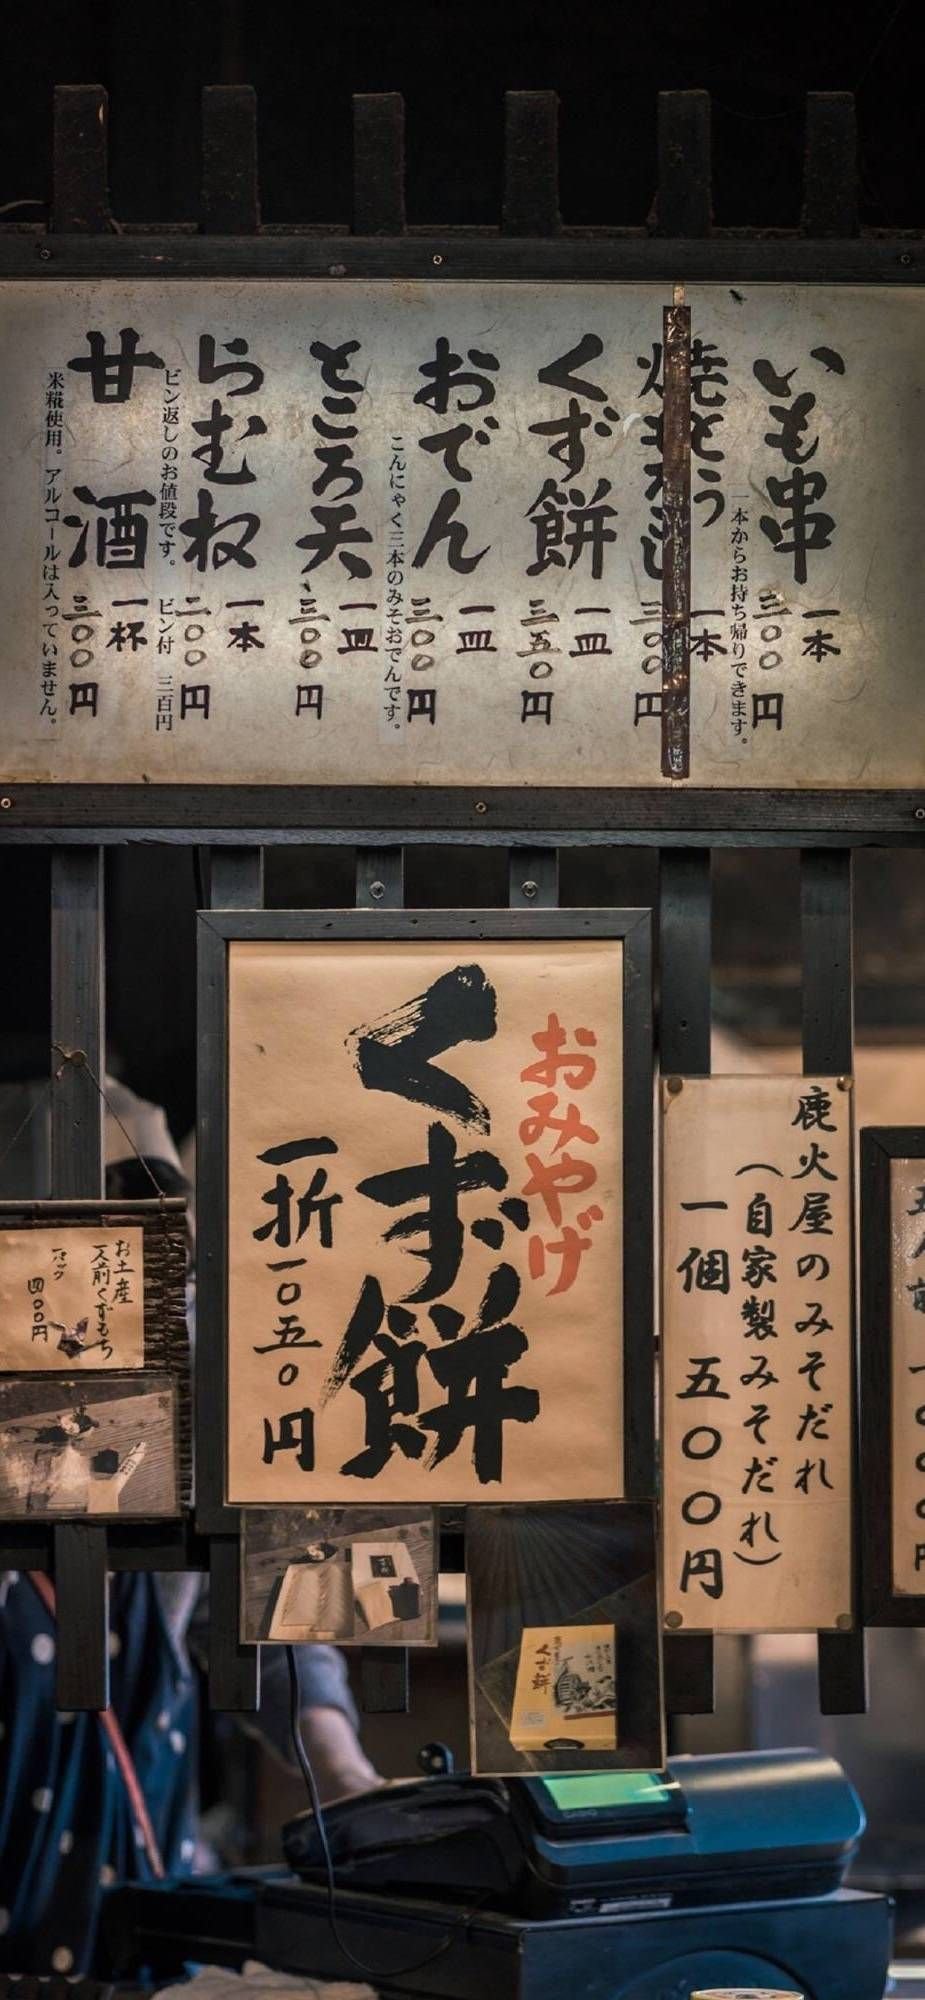 いも串
一本
三〇〇円
一本からお持ち帰りできます。
一本
三〇〇円
くず餅
一皿
三五〇円
おでん
一皿
三〇〇円
こんにゃく三本のみそおでんです。
ところ天
一皿
三〇〇円
らむね
一本
二〇〇円
ビン返しのお値段です。 ビン付 三百円
甘酒
一杯
三〇〇円
米糀使用。アルコールは入っていません。
おみやげ
くず餅
一折 一〇五〇円
鹿火屋のみそだれ
（自家製みそだれ）
一個 五〇〇円
お土産
一人前くずもち
四〇〇円
くず餅